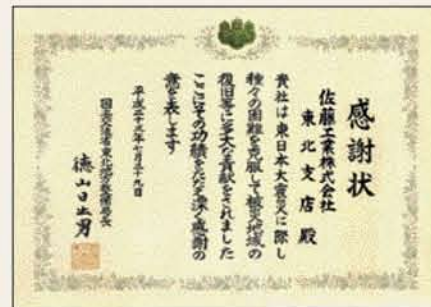 感謝状
佐藤工業株式会社
東北支店殿
貴社は東日本大震災に際し
種々の困難を克服して被災地域の
復旧等に多大な貢献をされました
ここにその功績をたたえ深く感謝の
意を表します
平成二十三年七月二十九日
国土交通省東北地方整備局長
徳山日出男